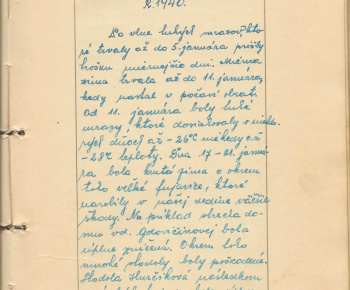 r. 1940.
Po vlne tuhých mrazov, kto-
ré trvaly až do 5. januára prišly
trošku miernejšie dni. Mierna
zima trvala až do 11. januára,
kedy nastal v počasí obrat.
Od 11. januára boly tuhé
mrazy, ktoré dosahovaly v niekto-
rých dňoch až -26°C niekedy až
-28°C teploty. Dňa 17-21. januá-
ra bola krutá zima a okrem
toho veľké fujavice, ktoré
narobily v našej dedine väčšie
škody. Na príklad strecha do-
mu vd. Gdovičinovej bola
úplne zničená. Okrem toho
mnohé stodoly boly poškodené.
Stodola Hurčíková následkom